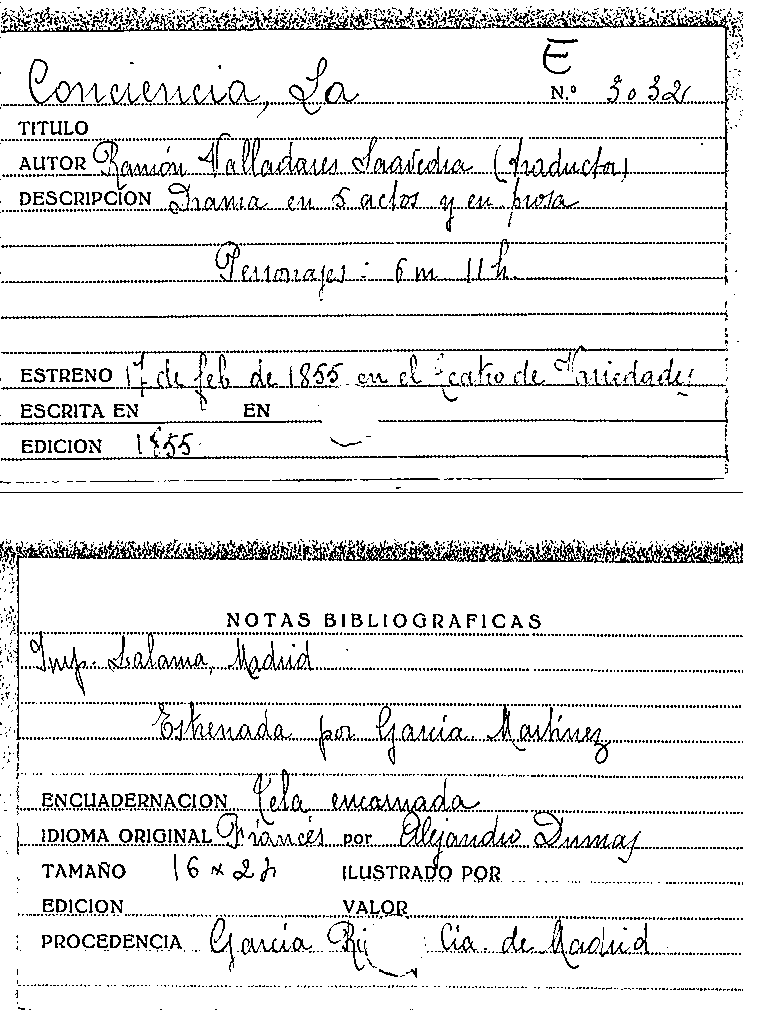 E
Conciencia, La N.º 3032
TITULO
AUTOR Ramón Valladares Saavedra (traductor)
DESCRIPCIÓN Drama en 5 actos y en prosa
Personajes: 6 m 11 h.
ESTRENO 17 de feb de 1855 en el Teatro de Variedades
ESCRITA EN EN
EDICION 1855
NOTAS BIBLIOGRAFICAS
Imp. Lalama, Madrid
Estrenada por García Martínez
ENCUADERNACION Tela encarnada
IDIOMA ORIGINAL Francés por Alejandro Dumas
TAMAÑO 16 x ILUSTRADO POR
EDICION VALOR
PROCEDENCIA García Cia. de Madrid